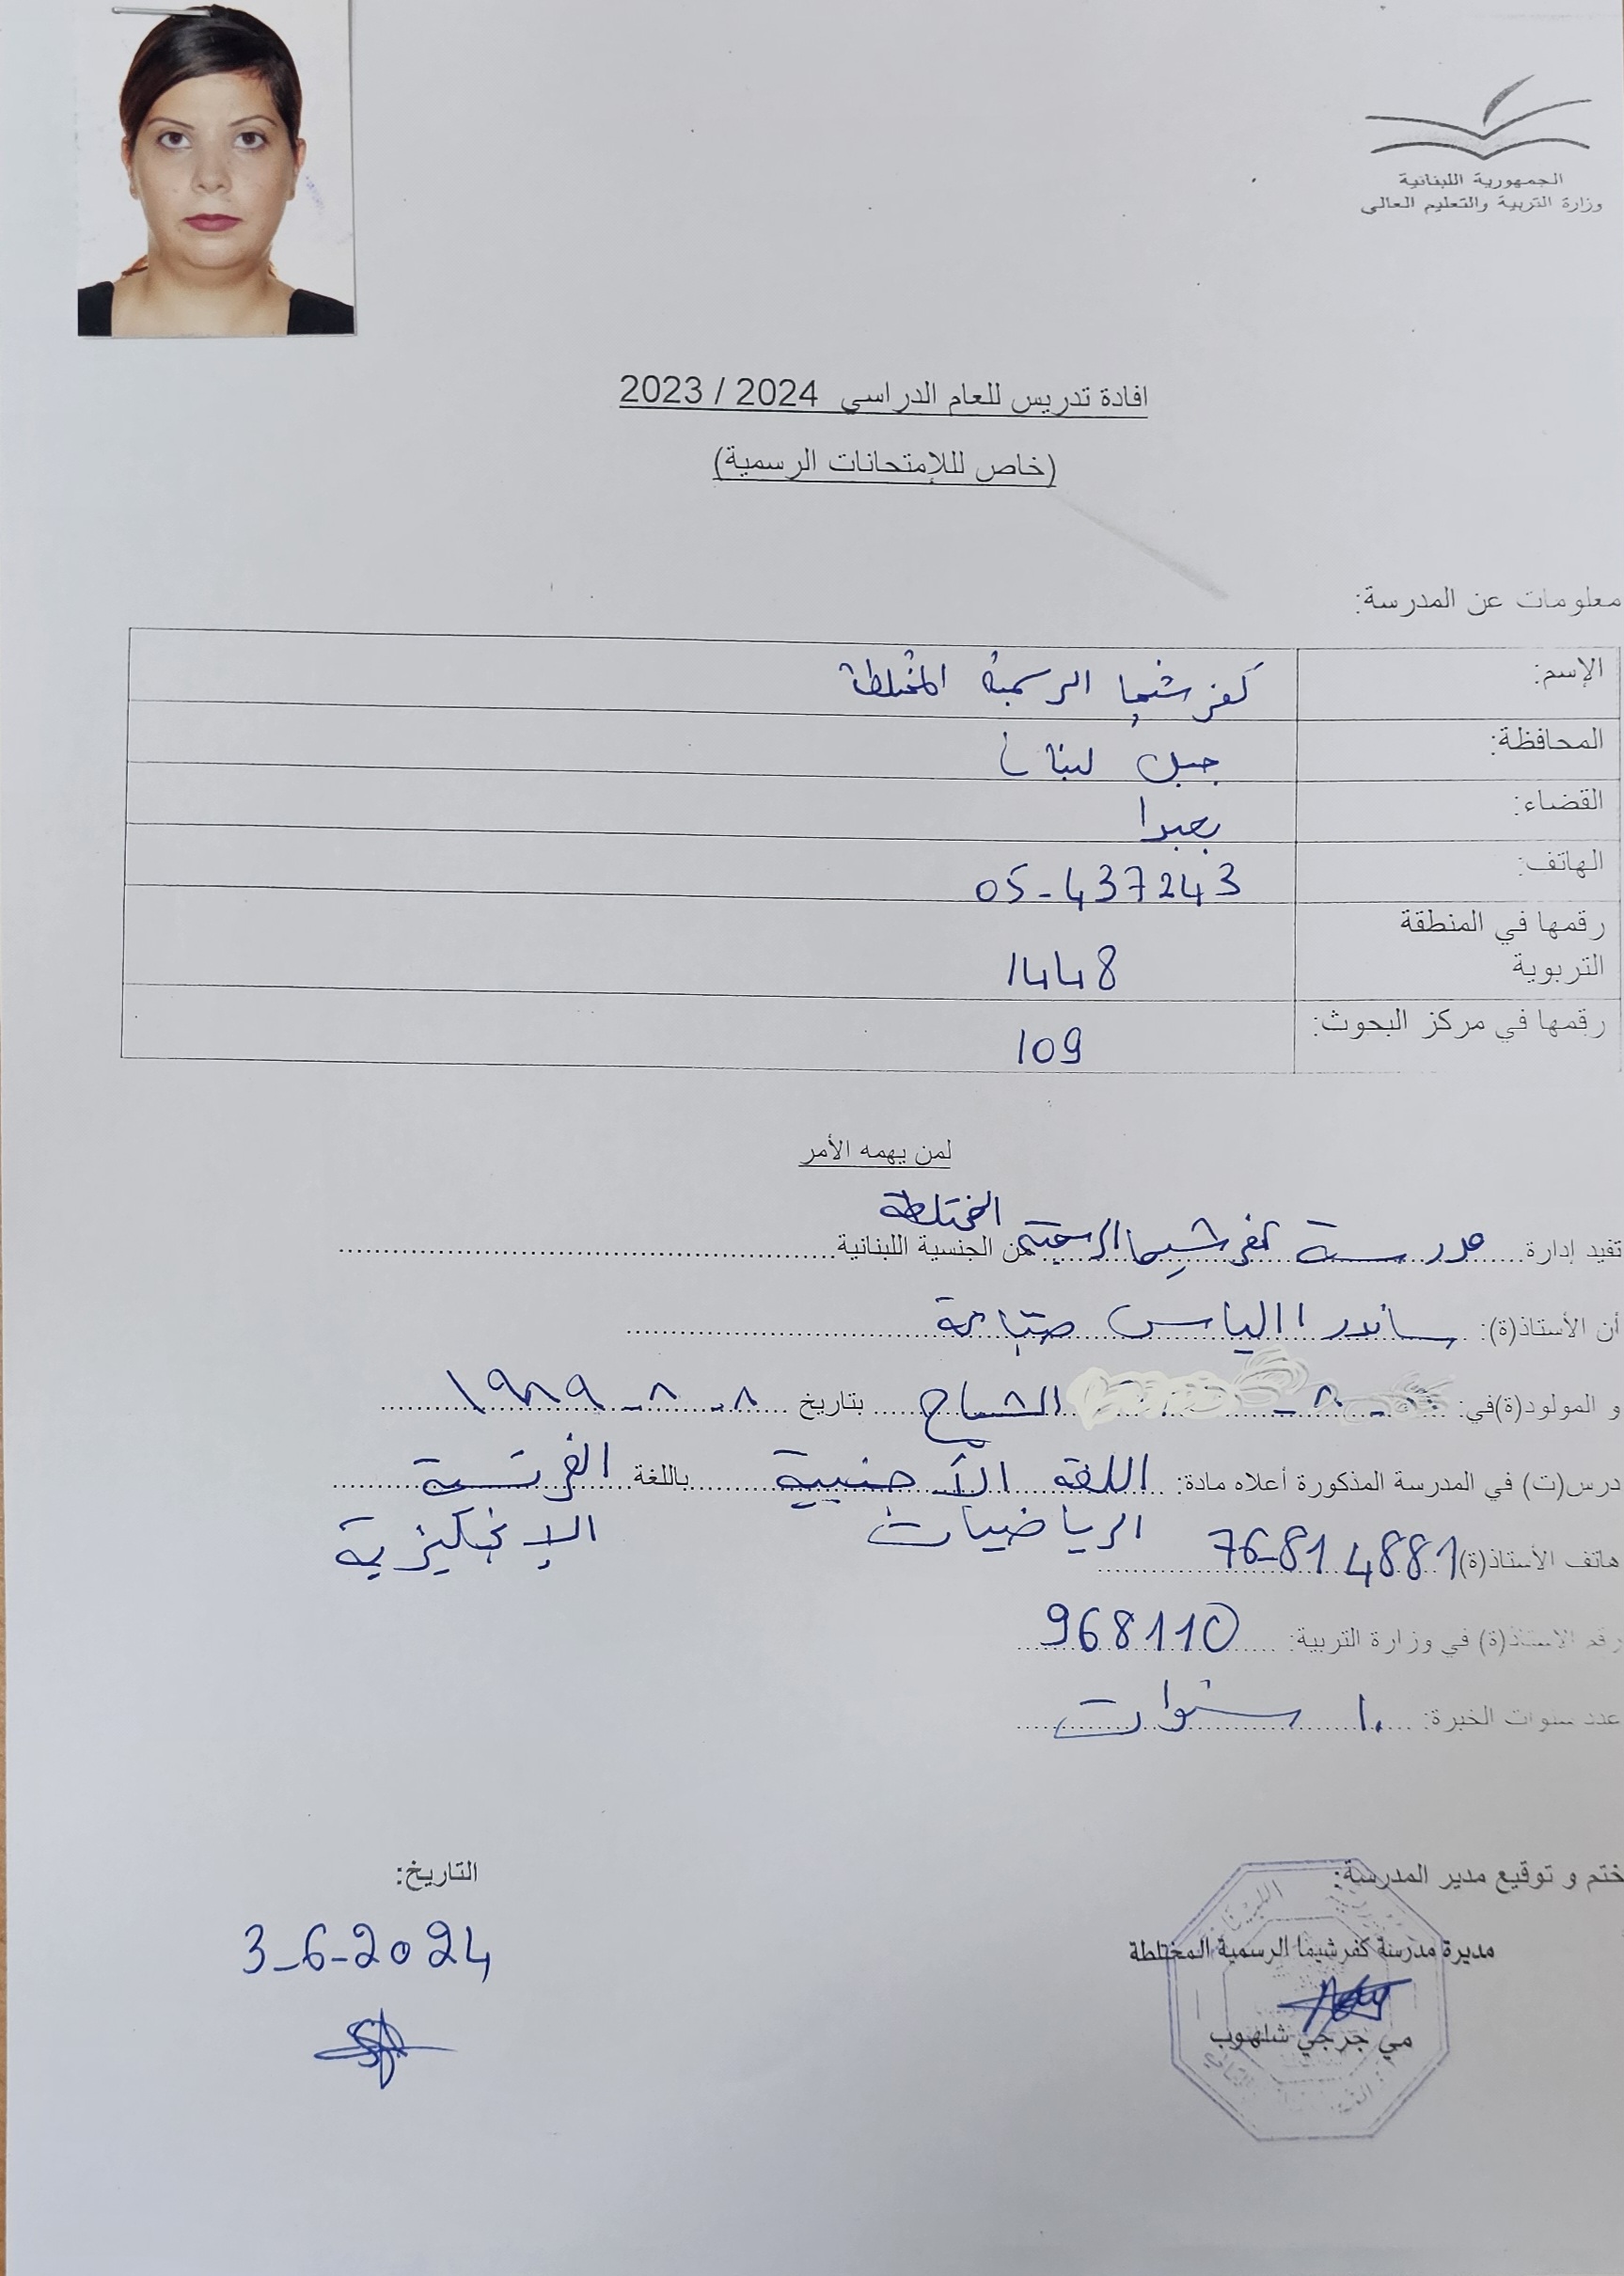 الجمهورية اللبنانية
وزارة التربية والتعليم العالي
افادة تدريس للعام الدراسي 2024 / 2023
(خاص لللإمتحانات الرسمية)
معلومات عن المدرسة:
الإسم: كفرشيما الرسمية المختلطة
المحافظة: جبل لبنان
القضاء: بعبدا
الهاتف: 05-437243
رقمها في المنطقة التربوية 1448
رقمها في مركز البحوث: 109
لمن يهمه الأمر
المختلطة
تفيد إدارة مدرسة كفرشيما الرسمية من الجنسية اللبنانية
أن الأستاذ(ة): ساندرا الياس
و المولود(ة)في: الشياح بتاريخ ٨-٨-١٩٨٩
درس(ت) في المدرسة المذكورة أعلاه مادة: اللغة الأجنبية باللغة الفرنسية
الرياضيات الإنجليزية
هاتف الأستاذ(ة) 76-814881
رقم الاستاذ(ة) في وزارة التربية: 968110
عدد سنوات الخبرة: ١٠ سنوات
ختم و توقيع مدير المدرسة: التاريخ:
مديرة مدرسة كفرشيما الرسمية المختلطة
3-6-2024
مي جرجي شلهوب